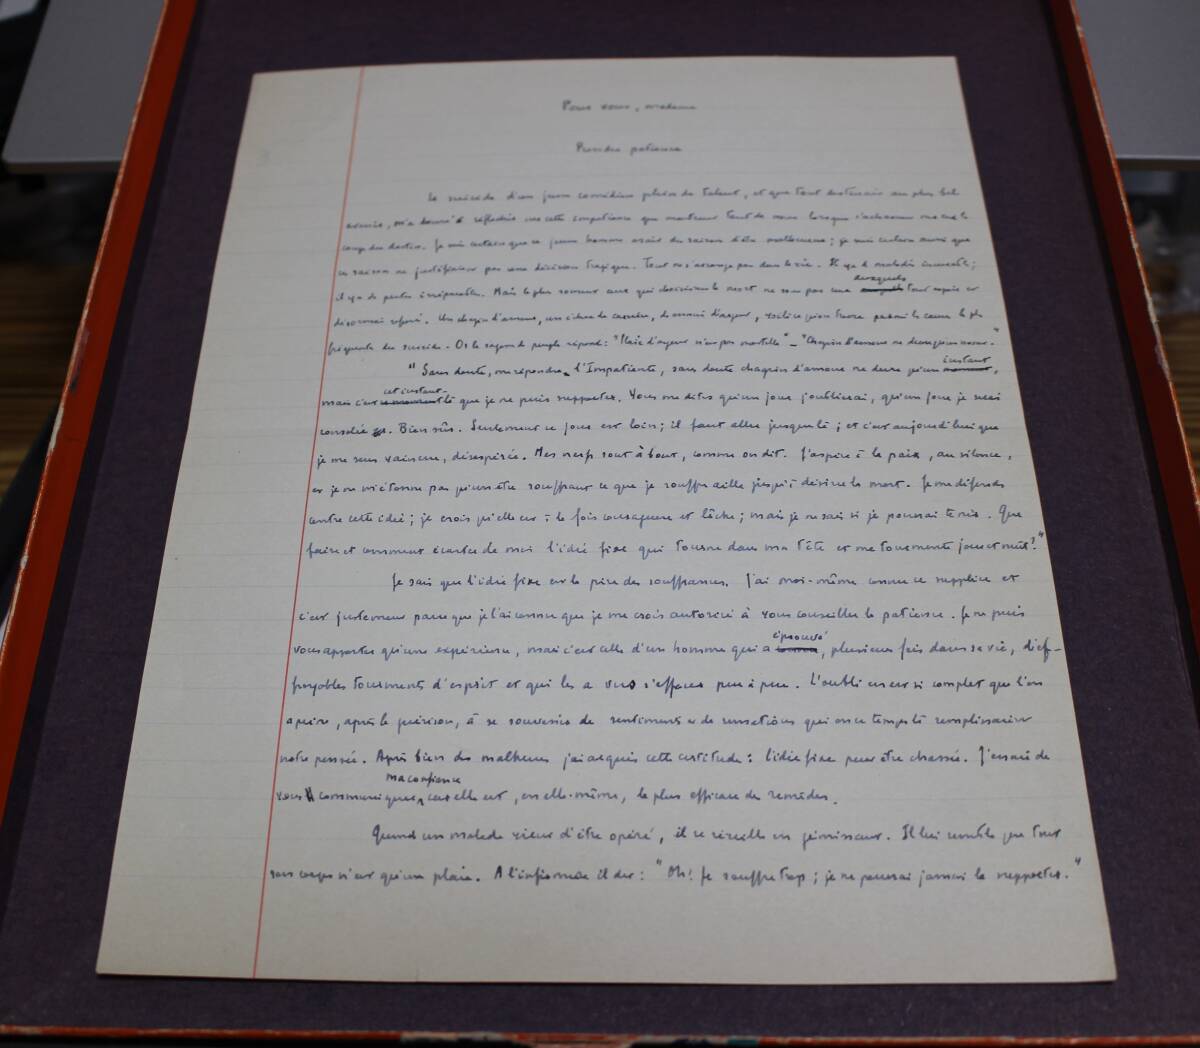 Pour vous, madame
Prendre patience
Le suicide d'un jeune comédien plein de talent, et que tout destinait au plus bel
avenir, m'a donné à réfléchir sur cette impatience que montrent tant de nous lorsque s'acharnent sur eux les
coups du destin. Je suis certain que ce jeune homme avait des raisons d'être malheureux ; je suis certain aussi que
ces raisons ne justifiaient pas une décision tragique. Tout ne s'arrange pas dans la vie. Il y a des maladies incurables ;
desquels
il y a des pertes irréparables. Mais le plus souvent ceux qui décident leur mort ne sont pas ceux auxquels tout espoir est
désormais refusé. Un chagrin d'amour, un échec de carrière, des ennuis d'argent, voilà ce qu'on trouve parmi les causes les plus
fréquentes des suicides. Or la sagesse du peuple répond : "Plaie d'argent n'est pas mortelle" - "Chagrin d'amour ne dure qu'un moment."
instant
"Sans doute, me répondra l'Impatiente, sans doute chagrin d'amour ne dure qu'un moment,
cet instant-
mais c'est ce moment là que je ne puis supporter. Vous me dites qu'un jour j'oublierai, qu'un jour je serai
consolée. Bien sûr. Seulement ce jour est loin ; il faut aller jusque là ; et c'est aujourd'hui que
je me sens vaincue, désespérée. Mes nerfs sont à bout, comme on dit. J'aspire à la paix, au silence,
et je ne m'étonne pas qu'un être souffrant ce que je souffre aille jusqu'à désirer la mort. Je me défends
contre cette idée ; je crois qu'elle est à la fois courageuse et lâche ; mais je ne sais si je pourrai tenir. Que
faire et comment écarter de moi l'idée fixe qui tourne dans ma tête et me tourmente jour et nuit ?"
Je sais que l'idée fixe est la pire des souffrances. J'ai moi-même connu ce supplice et
c'est justement parce que je l'ai connu que je me crois autorisé à vous conseiller la patience. Je ne puis
éprouvé
vous apporter qu'une expérience, mais c'est celle d'un homme qui a connu, plusieurs fois dans sa vie, d'ef-
froyables tourments d'esprit et qui les a vus s'effacer peu à peu. L'oubli en est si complet que l'on
a peine, après la guérison, à se souvenir de sentiments et de sensations qui en ce temps là remplissaient
notre pensée. Après bien des malheurs j'ai acquis cette certitude : l'idée fixe peut être chassée. J'essaie de
ma confiance
vous communiquer, car elle est, en elle-même, le plus efficace des remèdes.
Quand un malade vient d'être opéré, il se réveille en gémissant. Il lui semble que tout
son corps n'est qu'une plaie. A l'infirmière il dit : "Oh ! Je souffre trop ; je ne pourrai jamais le supporter."